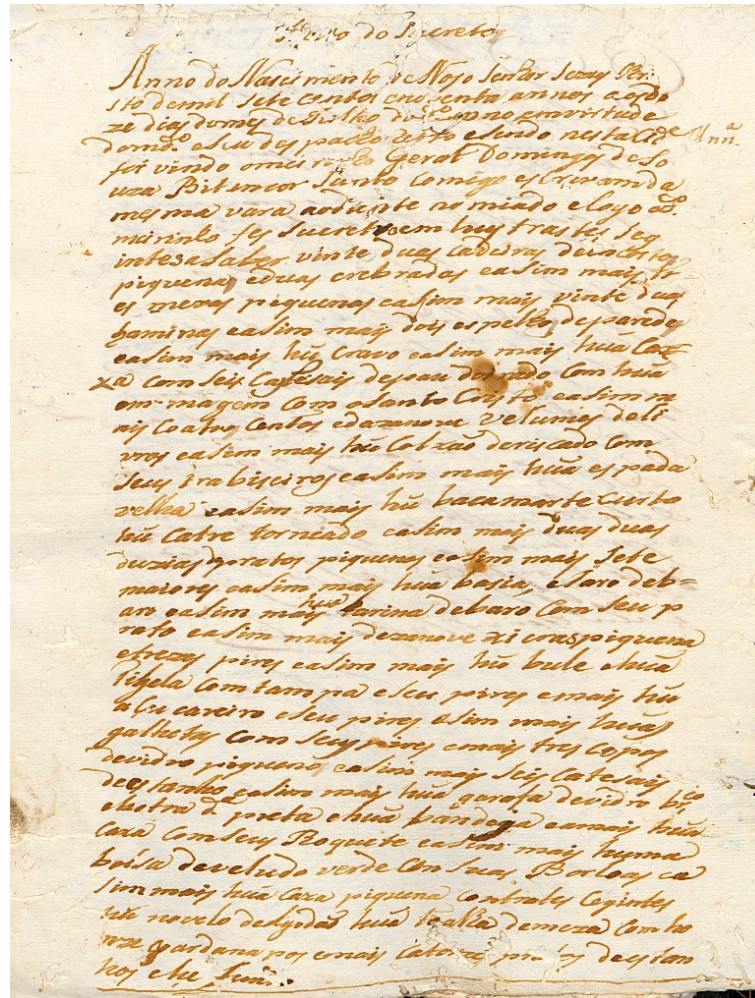 do Sucreto
Anno do Nascimento de Noso Senhor Jezus Cri
sto demil sete centos enosenta annos aodo
ze dias domes de Julho do
dom.º eseu despacho retro esendo nesta Cid.e
foi vindo omeirinho Geral Domingos de So
uza Bitencor Junto Comigo escrivam da
mesma vara aodiente nomiado elogo od.º
mirinho fes Sucresto em hus trastes seg
intes asaber vinte duas Cadeiras deincosto
piquenas eduas crebradas easim mais tr
es mezas piquenas easim mais vinte duas
laminas easim mais dois espelhos deparede
easim mais hũ Cravo easim mais hũa Cax
xa com seix Castesais depau dourado Com hũa
em magem Com oSanto Cristo easim m
ais Coatro Centos edazanove velumes deli
vros easim mais hũ Colxão deriscado Com
seus trabisciros easim mais hũa espada
velha easim mais hũ bacamarte Curto
hũ Catre torniado easim mais duas duas
duzias dpratos piquenos easim mais sete
maiores easim mais hũa basia, eJaro deb=
aro easim mais hũa tarina debaro Com seu p
rato easim mais dezanove xicras piquena
etrezes pires easim mais hũ bule ehũa
tigela Com tampa eseu pires emais hũ
açucareiro eseu pires esim mais hũas
galhetas com seus pires emais tres Copos
devidro piquenos easim mais seis Catesais
deestanho easim mais hũa garafa devidro br.co
eoutra d.ª preta ehũa bandeja eamais hũa
Caxa Comseus Roquete easim mais huma
bolsa develudo verde Con suas Borloas ea
sim mais hũa Caxa piquena Contrates Cegintes
hũ novelo dealgodão hũa toalha demeza Com ho
nze goardana pos emais Catorze pratos deestan
hos